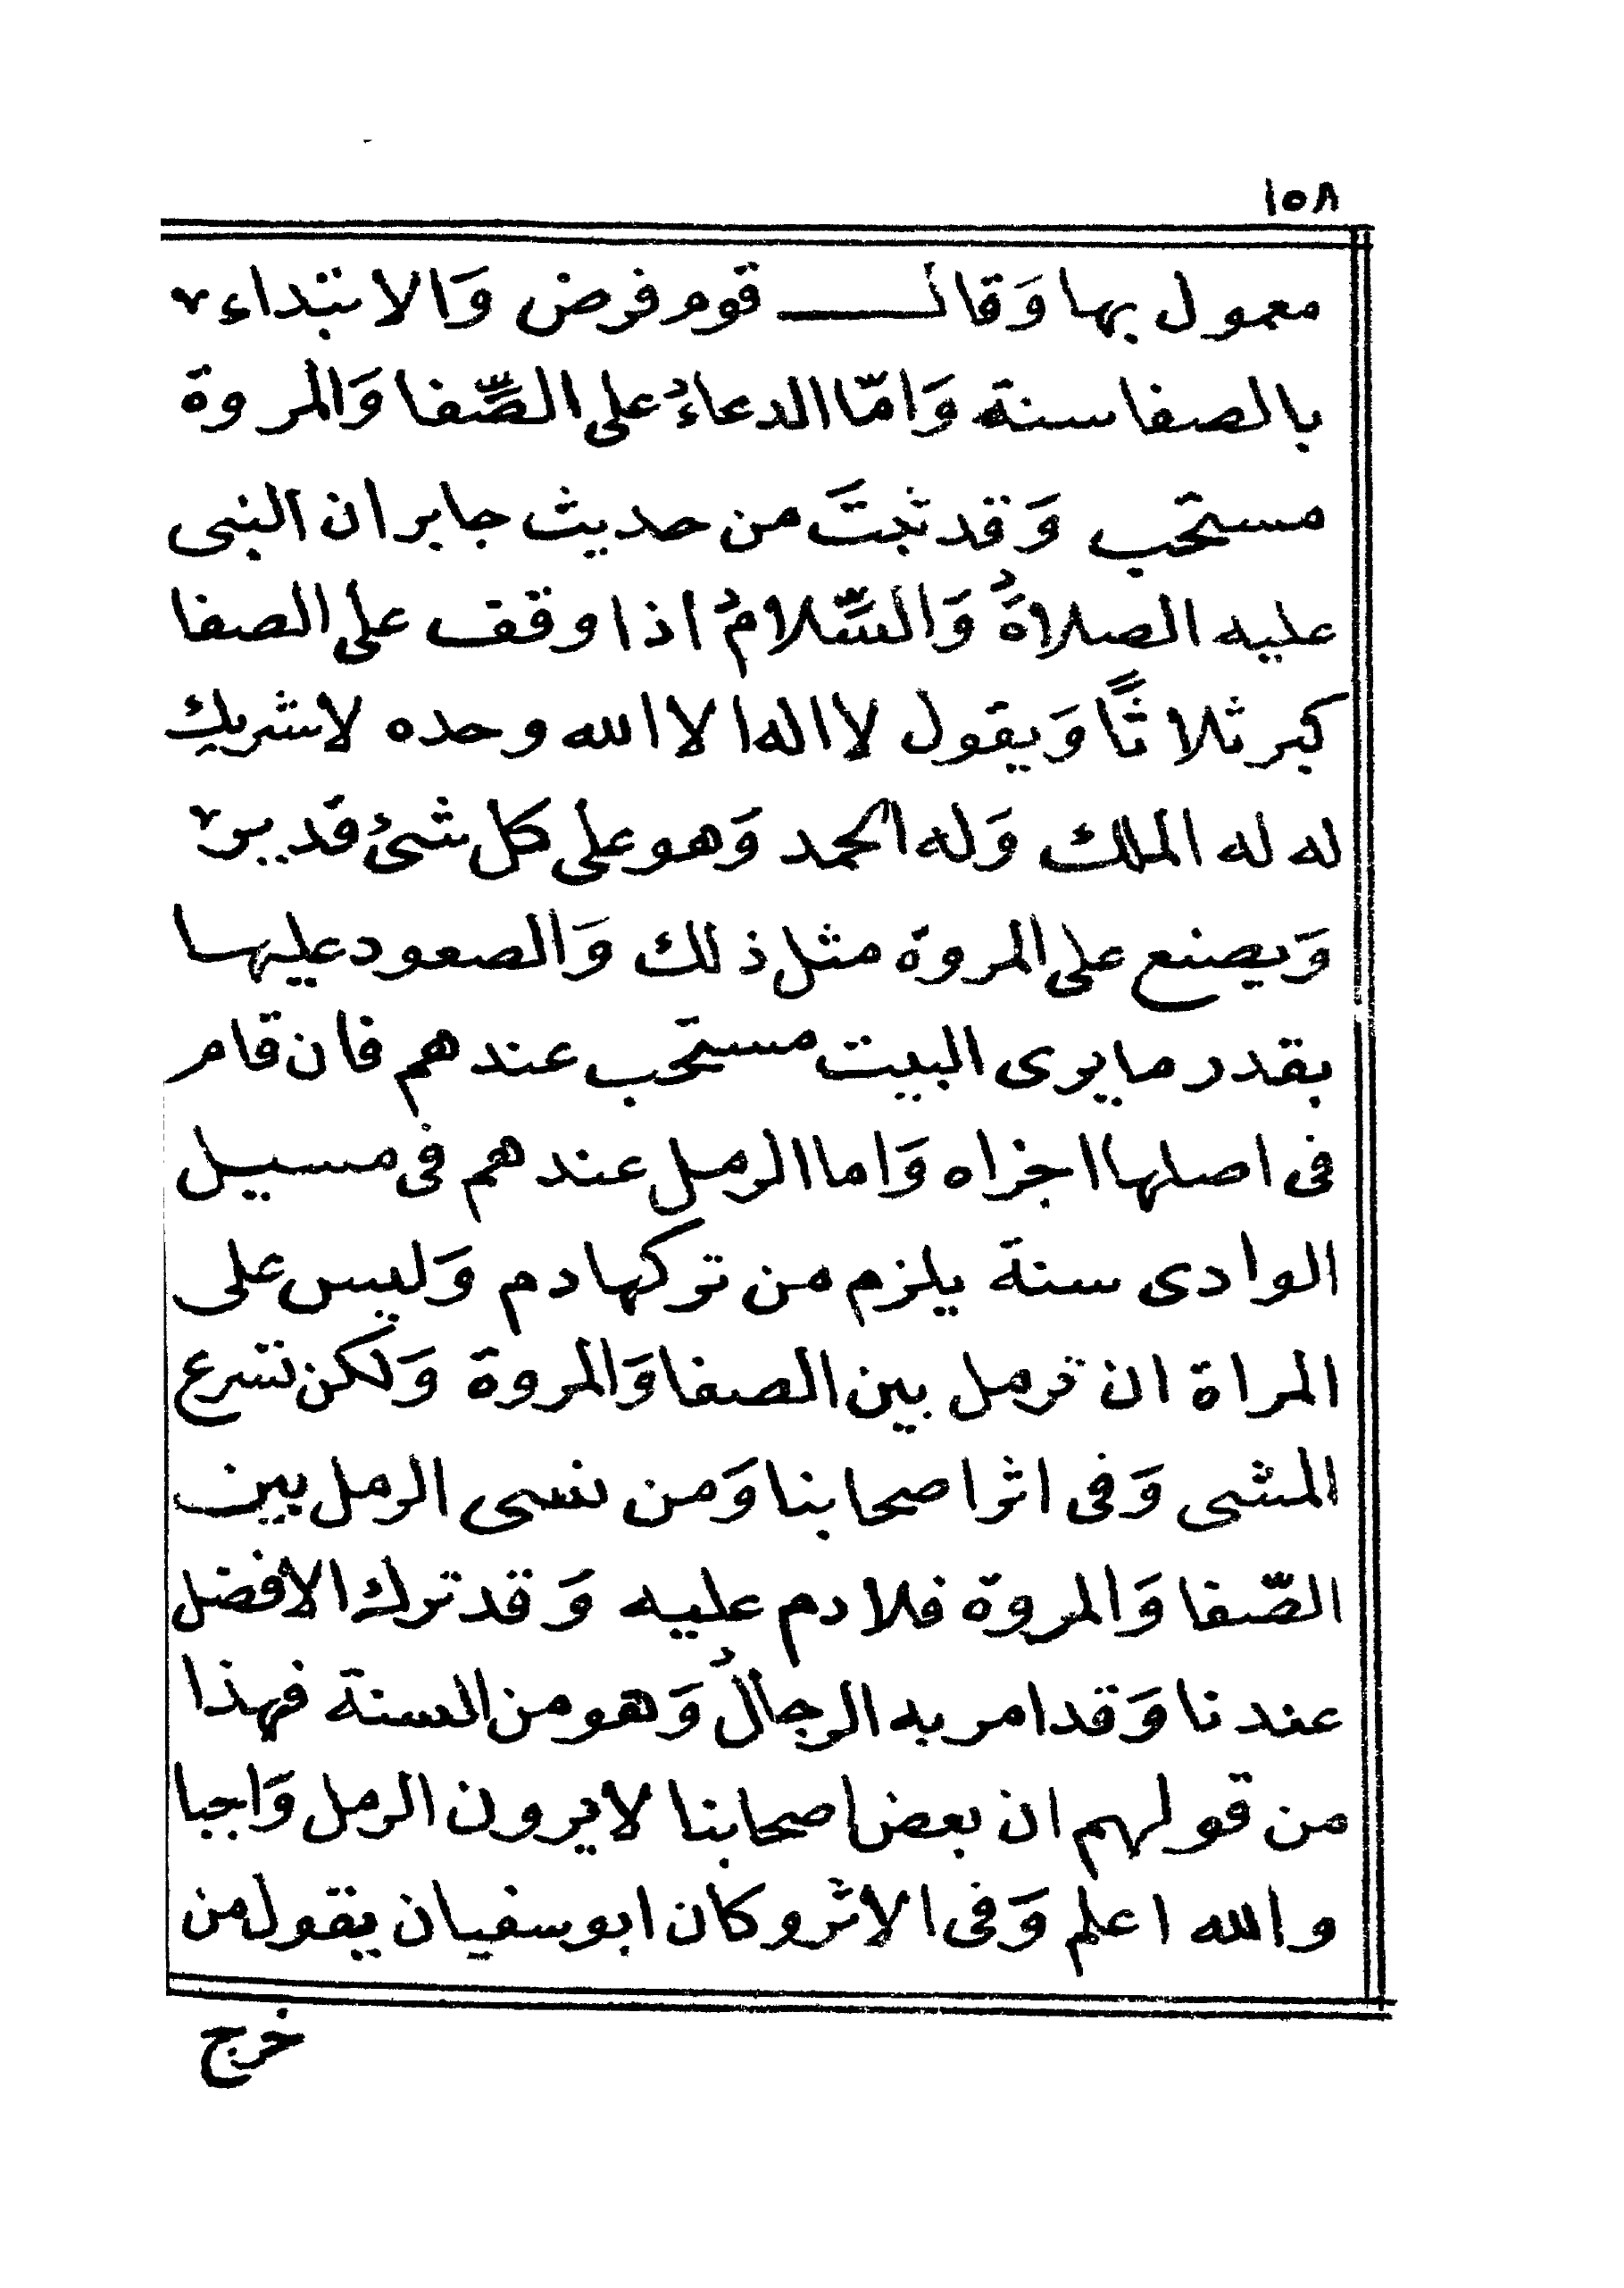 ١٥٨
معمول بها وَقال قوم فرض وَالابتداء
بالصفا سنة وَامّا الدعاءُ على الصّفا وَالمروة
مستحب وَقد ثبتَ من حديث جابر ان النبى
عليه الصلاةُ وَالسّلامُ اذا وقف على الصفا
كبر ثلاثاً وَيقول لا اله الا الله وحده لا شريك
له له الملك وَله الحمد وَهو على كل شئ قدير
وَيصنع على المروة مثل ذلك وَالصعود عليها
بقدر ما يرى البيت مستحب عندهم فان قام
فى اصلها اجزاه وَاما الرمل عندهم فى مسيل
الوادى سنة يلزم من تركها دم وَليس على
المراة ان ترمل بين الصفا وَالمروة وَلكن تسرع
المشى وَفى اثر اصحابنا وَمن نسى الرمل بين
الصّفا وَالمروة فلا دم عليه وَقد ترك الافضل
عندنا وَقد امر به الرجالُ وَهو من السنة فهذا
من قولهم ان بعض اصحابنا لا يرون الرمل وَاجبا
والله اعلم وَفى الاثر وكان ابو سفيان يقول من
خرج